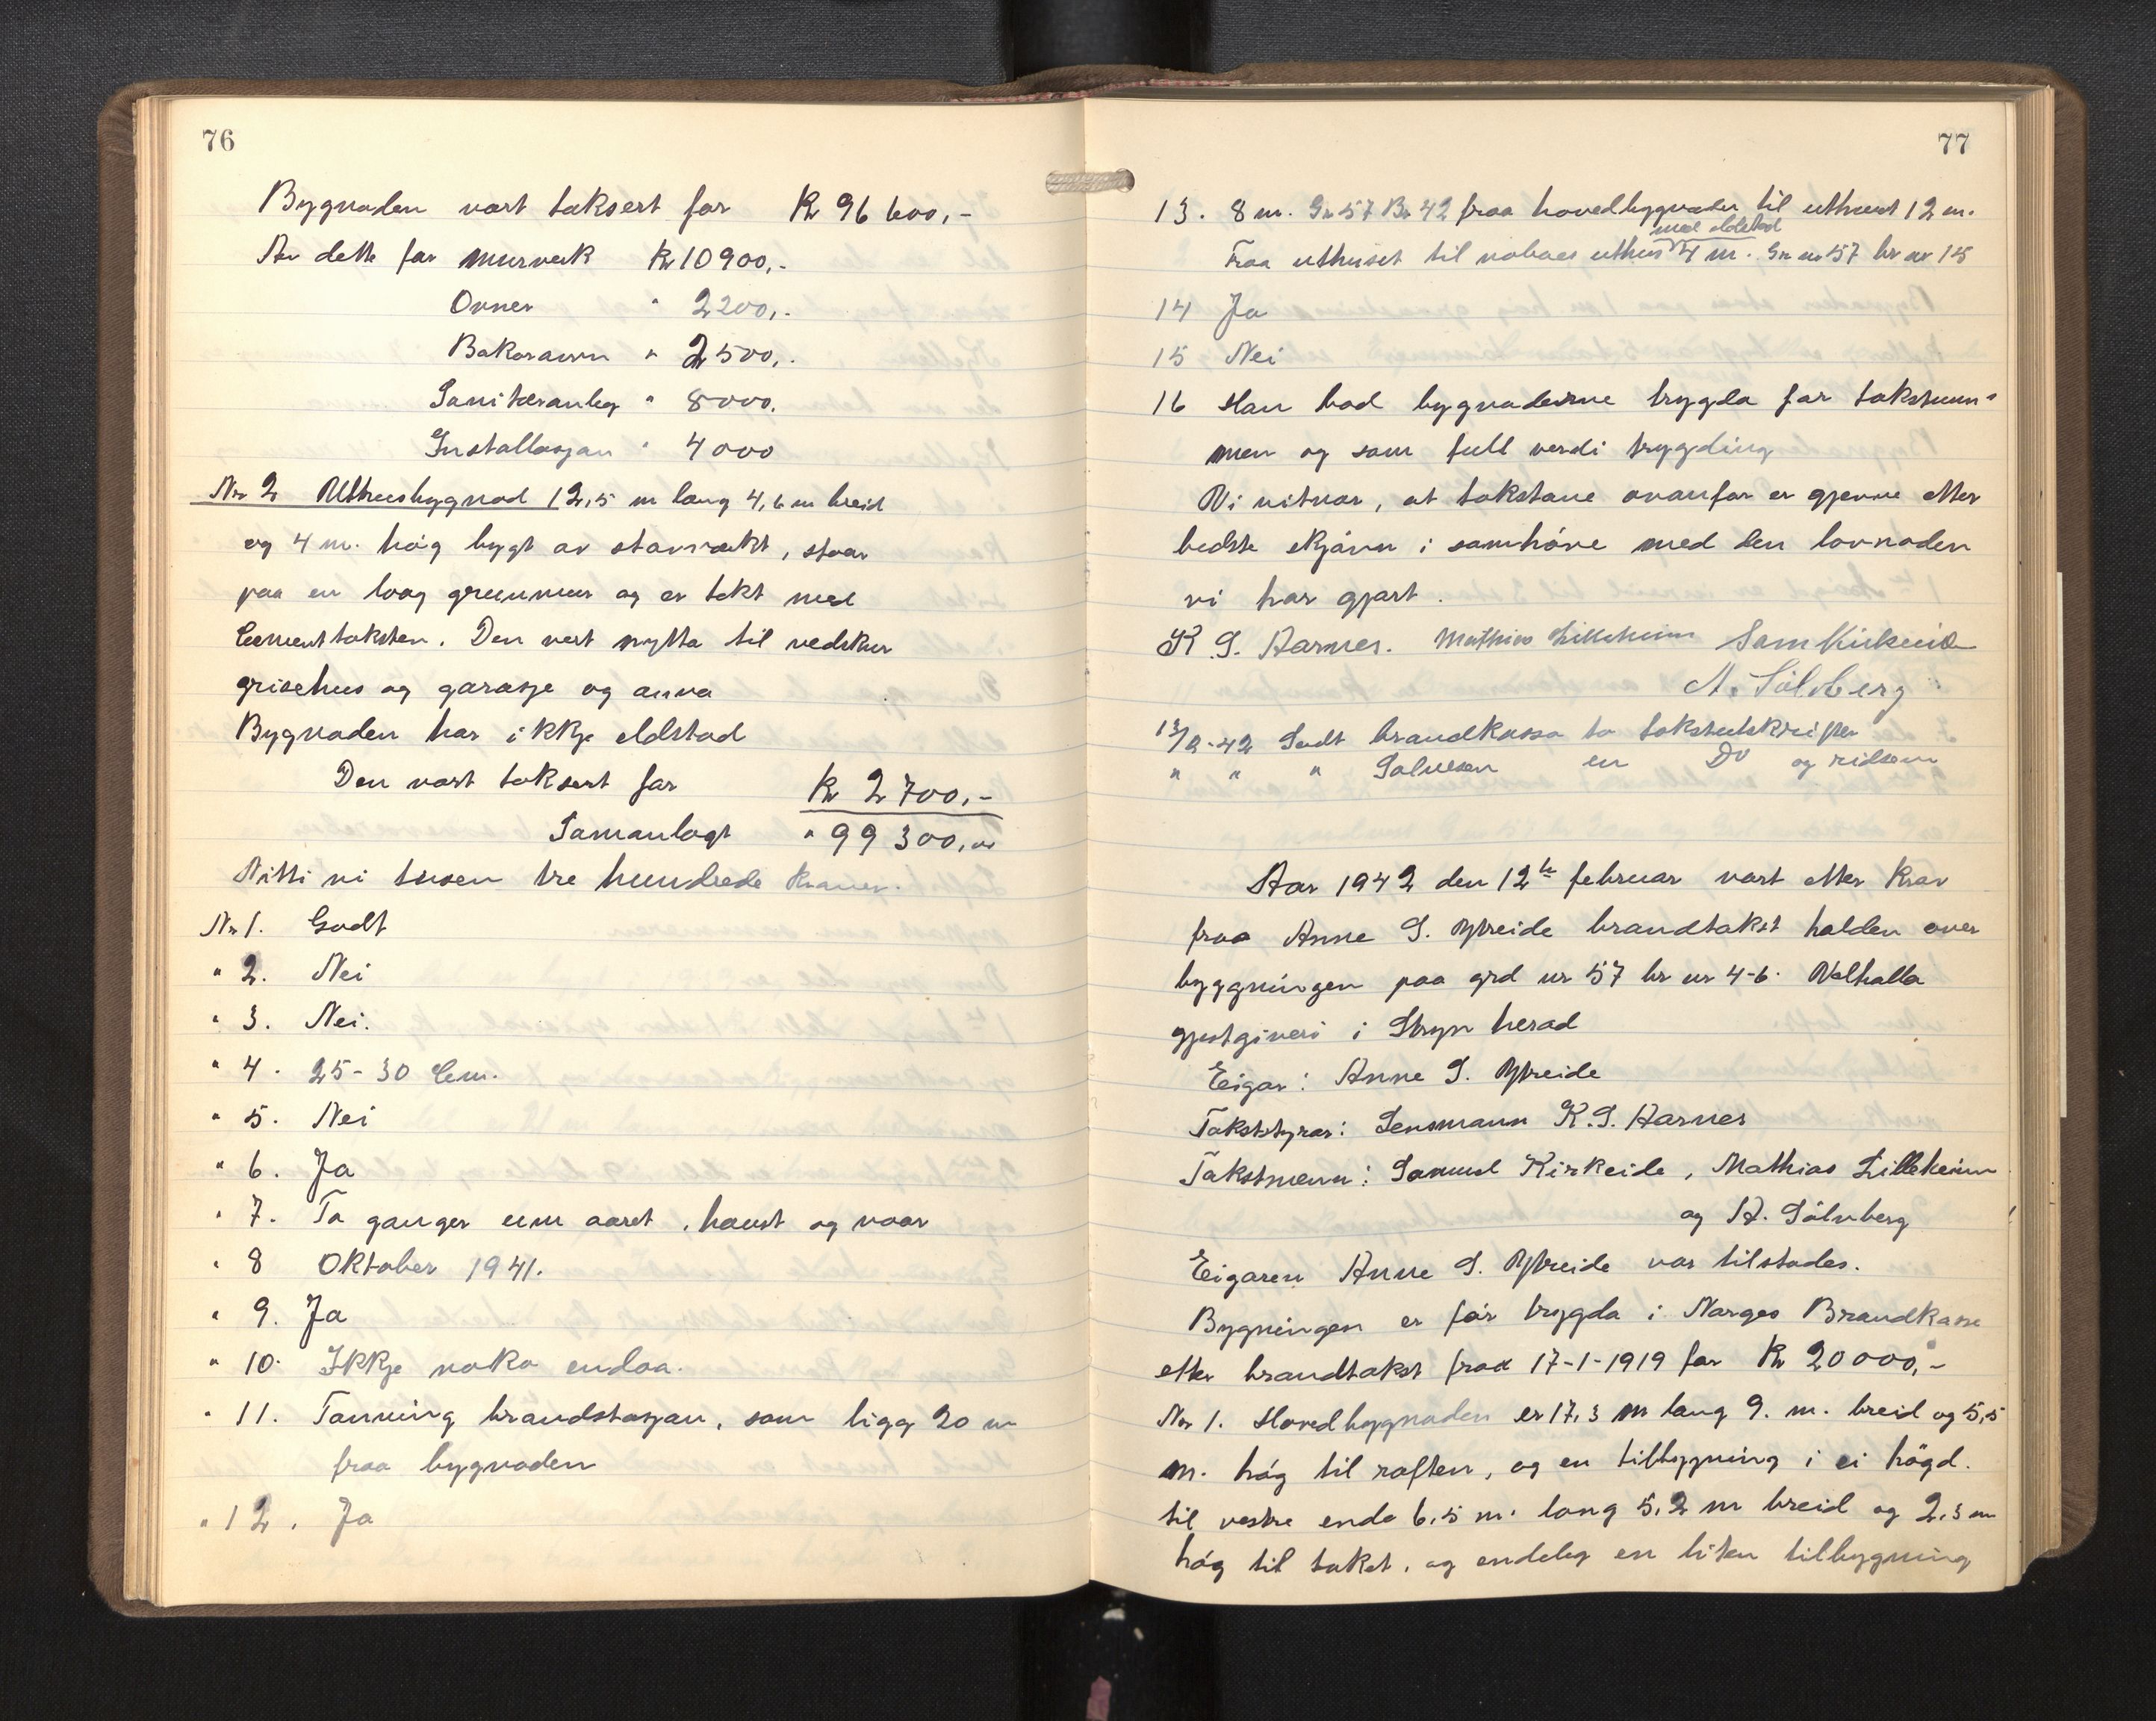 76
Bygnaden vart taksert for Kr 96 600,-
Av dette for murverk Kr 10900,-
Ovner " 2200,-
Bakarovn " 2500,-
Sanitæranleg " 8000,
Installasjon " 4000
Nr 2 Uthusbygnad 12,5 m lang 4,6 m breid
og 4 m. høg bygt av stavverkt, staar
paa en laag grunnmur og er tekt med
Cementtaksten. Den vert nytta til vedskur
grisehus og garasje og anna
Bygnaden har ikkje eldstad
Den vart taksert for Kr 2700,-
Samanlagt " 99 300,00
Nitti ni tusen tre hundrede kroner.
Nr 1. Godt
" 2. Nei
" 3. Nei.
" 4. 25-30 Cem.
" 5. Nei
" 6. Ja
" 7. To ganger um aaret, haust og vaar
" 8 Oktober 1941.
" 9. Ja
" 10. Ikkje noko endaa.
" 11. Tonning brandstasjon, som ligg 20 m
fraa bygnaden
" 12. Ja
77
13. 8 m. Gr 57 Br 42 fraa hovedbygnaden til uthuset 12 m.
med eldstad
Fraa uthuset til naboes uthus 4 m. Gr nr 57 br nr 15
14 Ja
15 Nei
16 Han bad bygnaderne trygda for takstsum-
men og som full verdi trygding
Vi vitnar, at takstane ovanfor er gjevne etter
bedste skjønn i samhøve med den lovnaden
vi har gjort.
K. S. Aarnes. Mathias Lilleheim Sam Kirkeide
A. Sølvberg
13/2-42 Sendt brandkassa to takstutskrifter
" " " Salvesen en Do og ridsem
Aar 1942 den 12te februar vart etter krav
fraa Anne S. Ytreide brandtakst halden over
byggningen paa grd nr 57 br nr 4-6. Valhalla
gjestgiveri i Stryn herad
Eigar: Anne S. Ytreide
Takststyrar: Lensmann K. S. Aarnes
Takstmenn: Samuel Kirkeide, Mathias Lilleheim
og A. Sølvberg
Eigaren Anne S. Ytreide var tilstades.
Bygningen er før trygda i Norges Brandkasse
etter brandtakst fraa 17-1-1919 for Kr 20000,-
Nr 1. Hovedbygnaden er 17,3 m lang 9. m. breid og 5,5
m. høg til raften, og en tilbygning i ei høgd.
til vestre enda 6,5 m. lang 5,2 m breid og 2,3 m
høg til taket, og endeleg en liten tilbygning